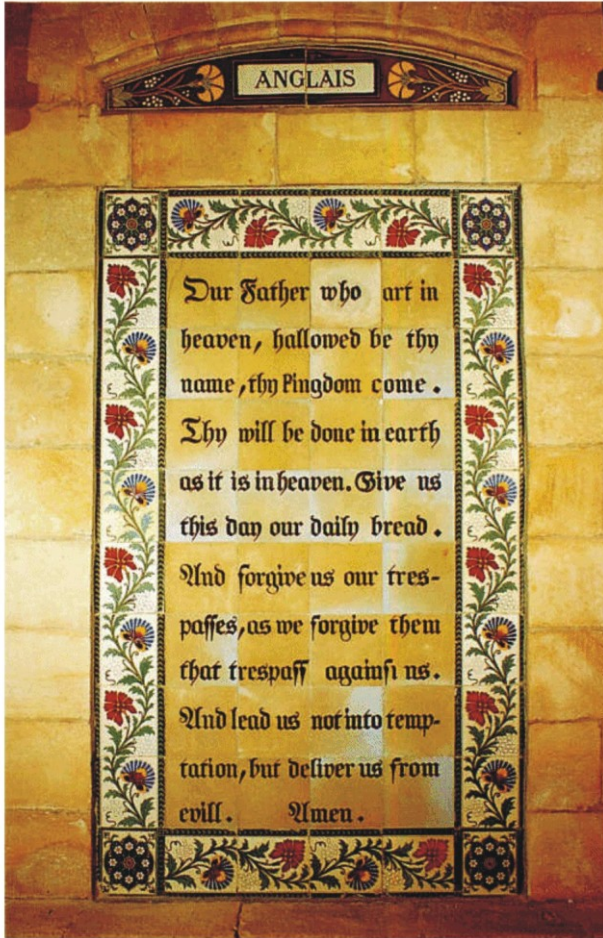 ANGLAIS
Our Father who art in
heaven, hallowed be thy
name, thy Pingdom come.
Thy will be done in earth
as it is in heaven. Give us
this day our daily bread.
And forgive us our tres-
paſſes, as we forgive them
that trespaſſ againſt us.
And lead us not into temp-
tation, but deliver us from
evill. Amen.